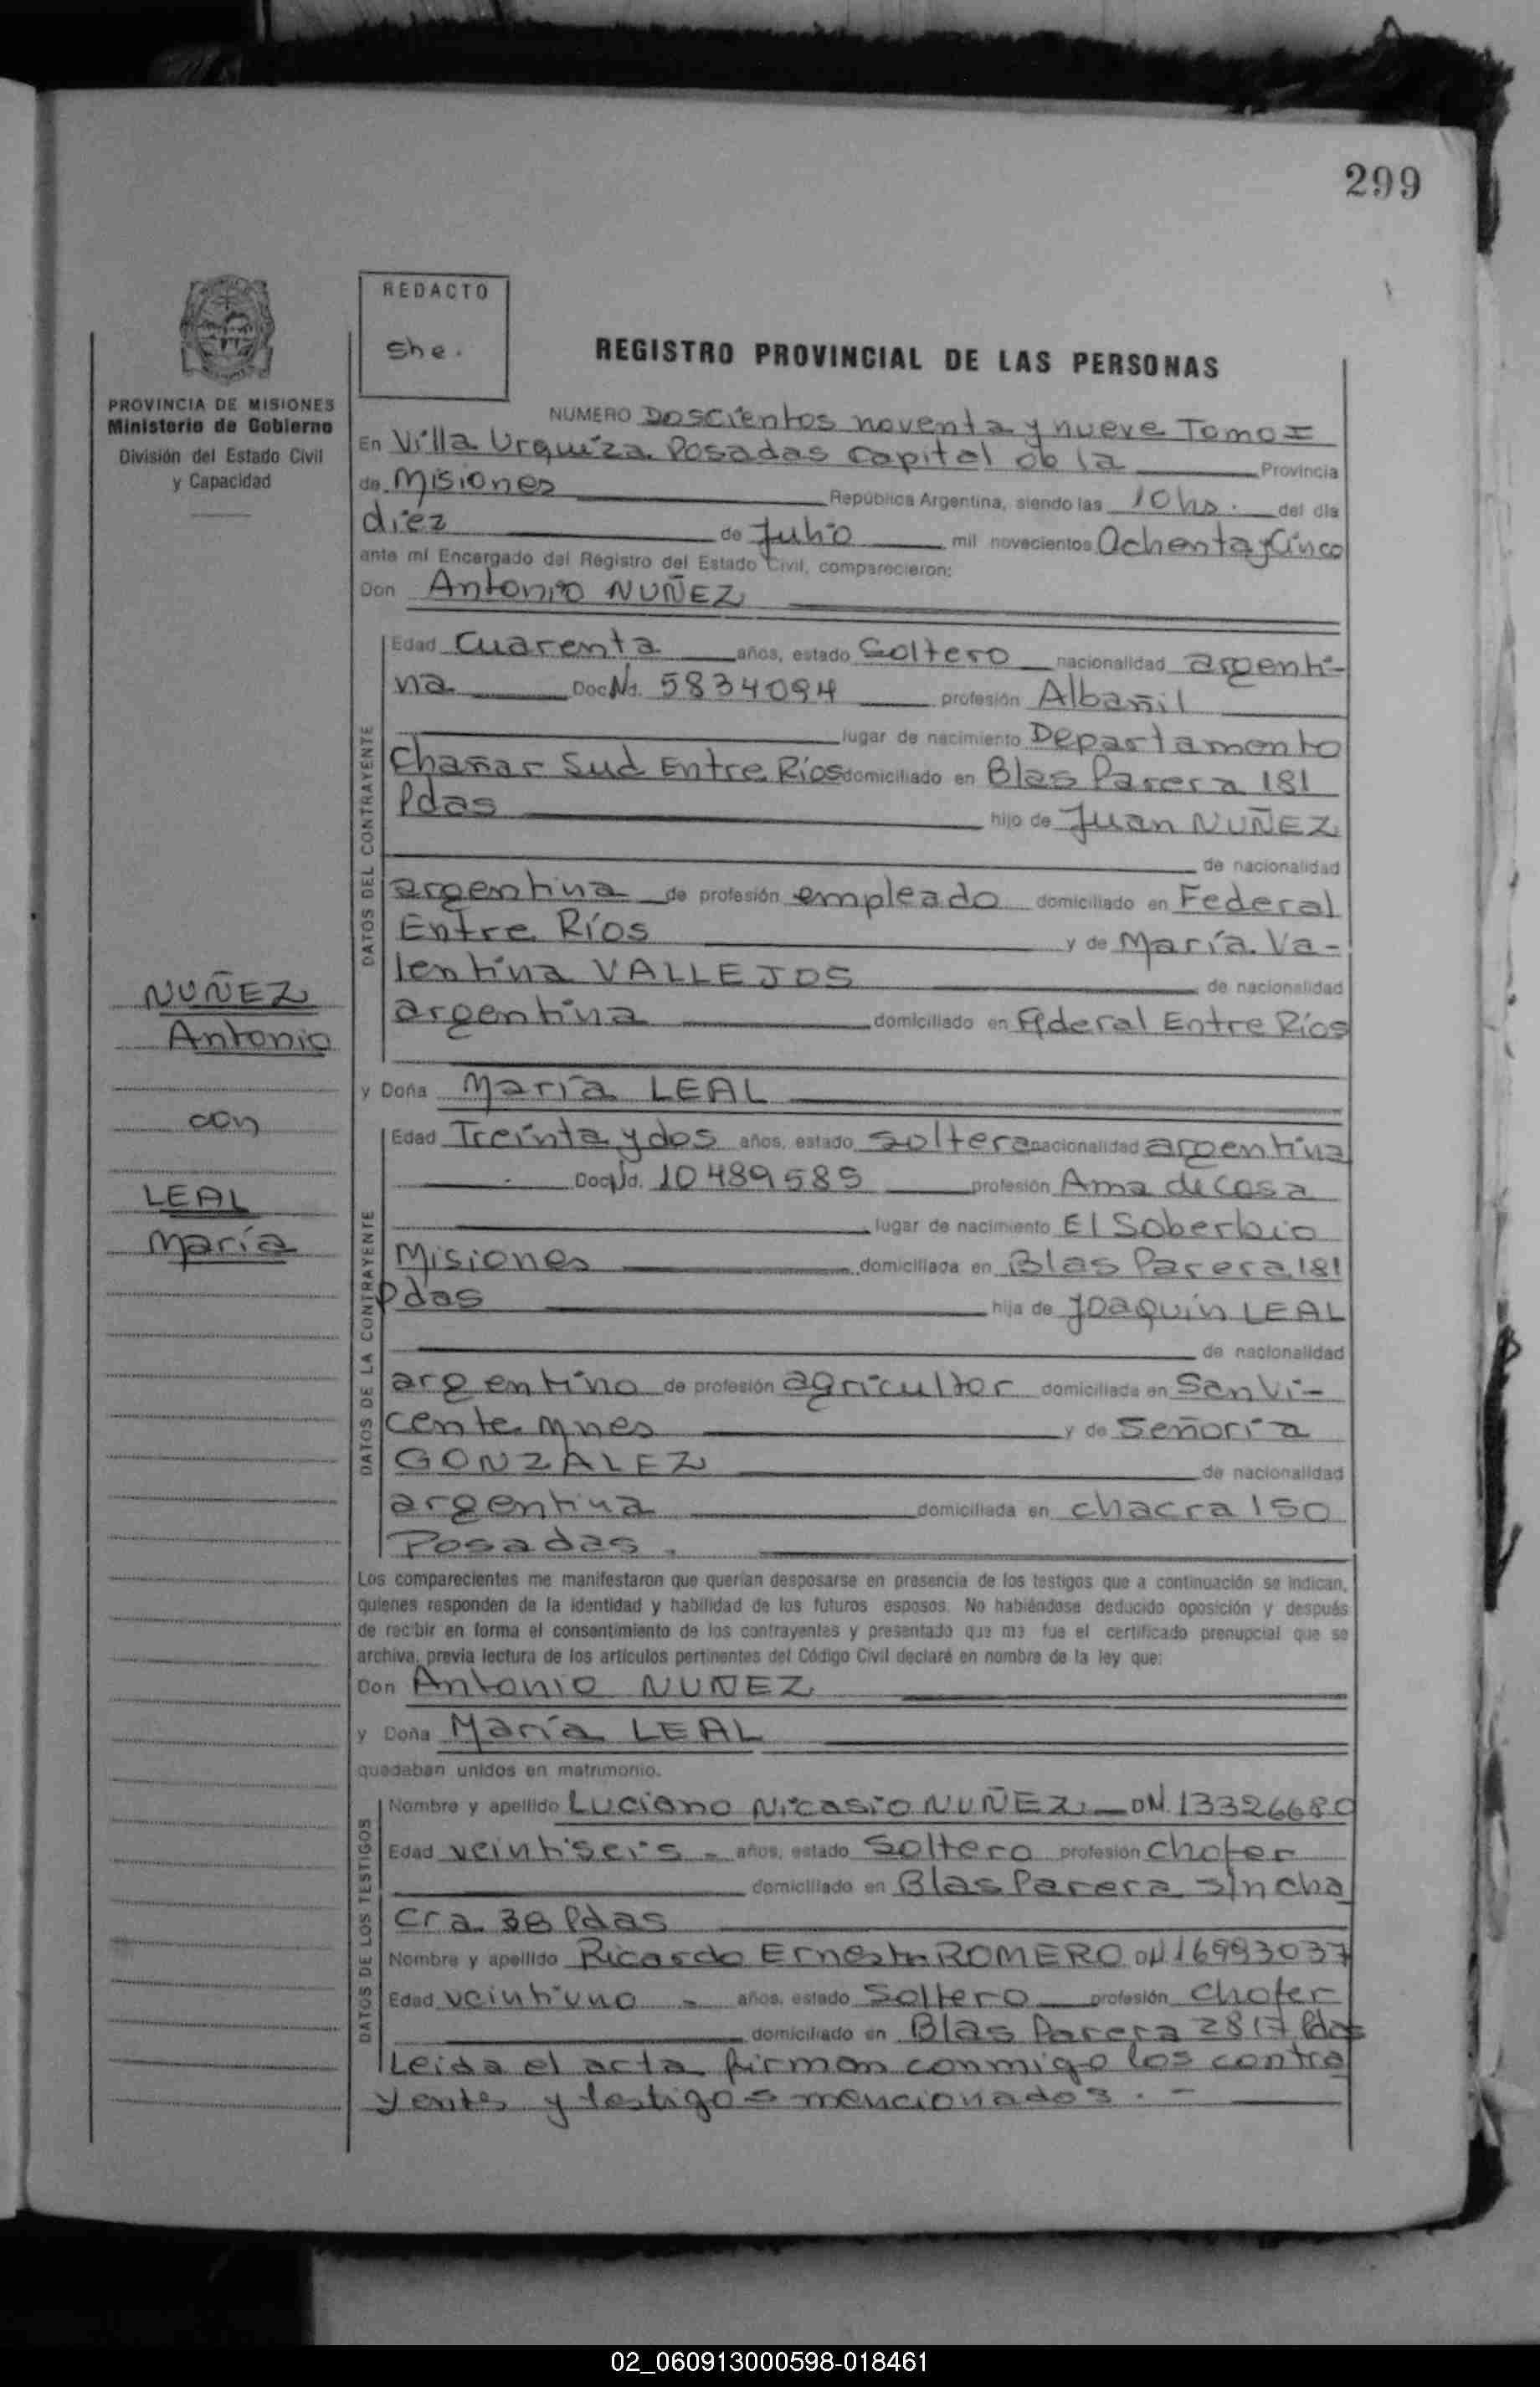 299
REDACTO
She.
PROVINCIA DE MISIONES
Ministerio de Gobierno
División del Estado Civil
y Capacidad
REGISTRO PROVINCIAL DE LAS PERSONAS
NUMERO Doscientos noventa y nueve Tomo I
En Villa Urquiza Posadas Capital de la Provincia
de Misiones República Argentina, siendo las 10 hs. del día
diéz de Julio mil novecientos Ochenta y Cinco
ante mí Encargado del Registro del Estado Civil, comparecieron:
Don Antonio NUÑEZ
DATOS DEL CONTRAYENTE
Edad Cuarenta años, estado Soltero nacionalidad argenti-
na Doc No. 5834094 profesión Albañil
lugar de nacimiento Departamento
Chañar Sud Entre Ríos domiciliado en Blas Parera 181
Pdas hijo de Juan NUÑEZ
de nacionalidad
argentina de profesión empleado domiciliado en Federal
Entre Ríos y de María Va-
lentina VALLEJOS de nacionalidad
argentina domiciliado en Federal Entre Ríos
NUÑEZ
Antonio
con
LEAL
María
y Doña María LEAL
DATOS DE LA CONTRAYENTE
Edad Treinta y dos años, estado soltera nacionalidad argentina
Doc No. 10489589 profesión Ama de Casa
lugar de nacimiento El Soberbio
Misiones domiciliada en Blas Parera 181
Pdas hija de Joaquín LEAL
de nacionalidad
argentino de profesión agricultor domiciliada en San Vi-
cente Mnes y de Señoria
GONZALEZ de nacionalidad
argentina domiciliada en chacra 150
Posadas.
Los comparecientes me manifestaron que querían desposarse en presencia de los testigos que a continuación se indican,
quienes responden de la identidad y habilidad de los futuros esposos. No habiéndose deducido oposición y después
de recibir en forma el consentimiento de los contrayentes y presentado que me fue el certificado prenupcial que se
archiva, previa lectura de los artículos pertinentes del Código Civil declaré en nombre de la ley que:
Don Antonio NUÑEZ
y Doña María LEAL
quedaban unidos en matrimonio.
DATOS DE LOS TESTIGOS
Nombre y apellido Luciano Nicasio NUÑEZ DN. 13326680
Edad veintiseis - años, estado Soltero profesión Chofer
domiciliado en Blas Parera s/n cha
cra 38 Pdas
Nombre y apellido Ricardo Ernesto ROMERO DN 16993037
Edad veintiuno - años, estado Soltero profesión Chofer
domiciliado en Blas Parera 2817 Pdas
Leida el acta firman conmigo los contra
yentes y testigos mencionados. -
02_060913000598-018461